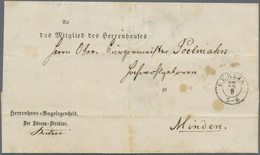 An
das Mitglied des Herrenhauses
Herrn Ober-Bürgermeister Poelmahn
Hochwohlgeboren
zu
Minden.
Herrenhaus-Angelegenheit.
Der Büreau-Direktor.